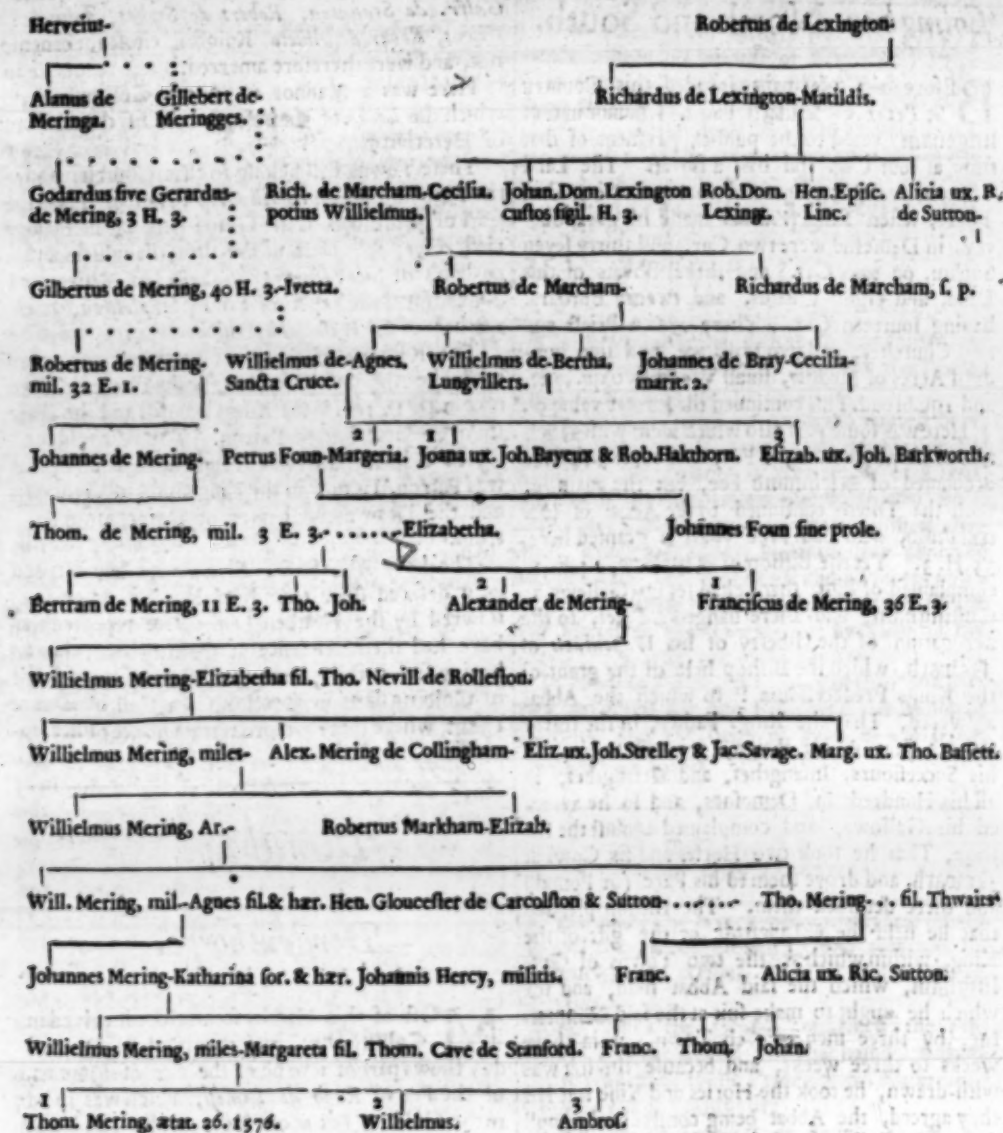 Herveius-    Robertus de Lexington-
Alanus de    Gillebert de-    Richardus de Lexington-Matildis.
Meringa.    Meringges.
Godardus sive Gerardus-    Rich. de Marcham-Cecilia.    Johan. Dom. Lexington    Rob. Dom.    Hen. Episc.    Alicia ux. R.
de Mering, 3 H. 3.    potius Willielmus.    custos sigil. H. 3.    Lexingt.    Linc.    de Sutton-
Gilbertus de Mering, 40 H. 3.-Ivetta.    Robertus de Marcham-    Richardus de Marcham, s. p.
Robertus de Mering-    Willielmus de-Agnes.    Willielmus de-Bertha.    Johannes de Bray-Cecilia-
mil. 32 E. 1.    Sancta Cruce.    Lungvillers.    marit. 2.
2    1    3
Johannes de Mering-    Petrus Foun-Margeria.    Joana ux. Joh. Bayeux & Rob. Hakthorn.    Elizab. ux. Joh. Barkworth.
Thom. de Mering, mil. 3 E. 3.- . . . . . . -Elizabetha.    Johannes Foun sine prole.
2    1
Bertram de Mering, 11 E. 3.    Tho.    Joh.    Alexander de Mering-    Franciscus de Mering, 36 E. 3.
Willielmus Mering-Elizabetha fil. Tho. Nevill de Rolleston.
Willielmus Mering, miles-    Alex. Mering de Collingham-    Eliz. ux. Joh. Strelley & Jac. Savage.    Marg. ux. Tho. Bassett.
Willielmus Mering, Ar.-    Robertus Markham-Elizab.
Will. Mering, mil.-Agnes fil. & hær. Hen. Gloucester de Carcolston & Sutton- . . . . . . -    Tho. Mering- . . fil. Thwaits
Johannes Mering-Katharina sor. & hær. Johannis Hercy, militis.    Franc.    Alicia ux. Ric. Sutton.
Willielmus Mering, miles-Margareta fil. Thom. Cave de Stanford.    Franc.    Thom.    Johan.
1    2    3
Thom. Mering, ætat. 26. 1576.    Willielmus.    Ambros.